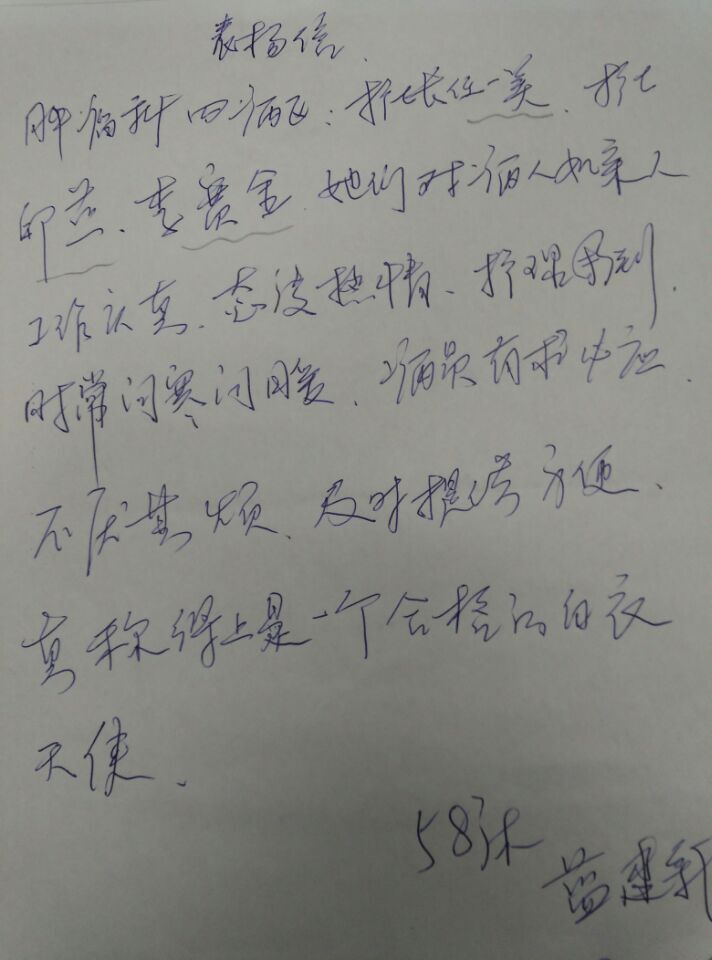 表扬信
肿瘤科四病区:护士长任一美、护士
印燕、李赛金、她们对病人如亲人
工作认真、态度热情、护理周到、
时常问寒问暖、病员有求必应、
不厌其烦、及时提供方便、
真称得上是一个合格的白衣
天使、
58床
蓝建新